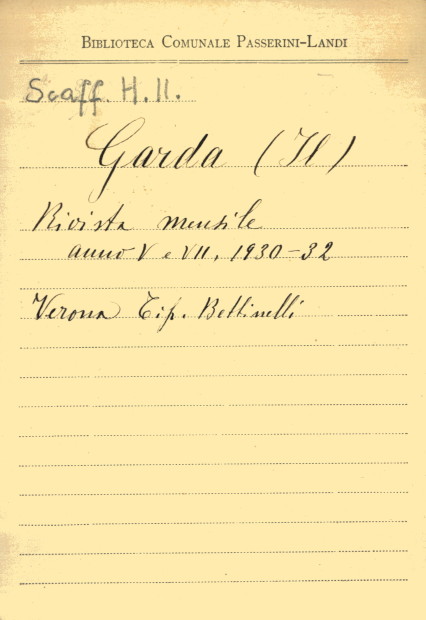 BIBLIOTECA COMUNALE PASSERINI-LANDI
Scaff. H. 11.
Garda (Il)
Rivista mensile
anno V e VII, 1930-32
Verona Tip. Bettinelli